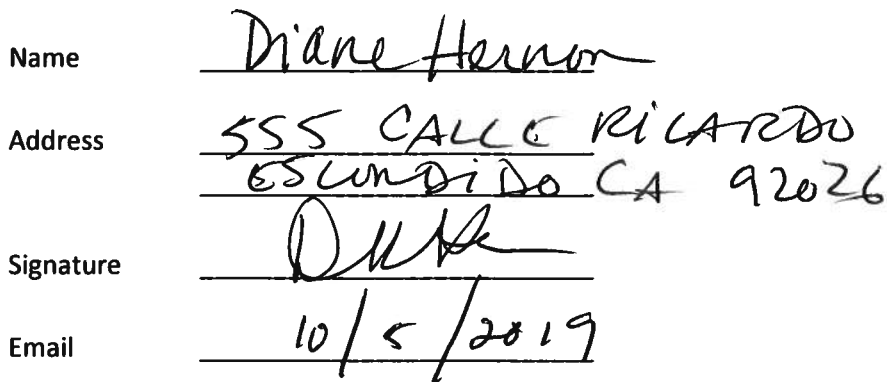 Name Diane Hernon
Address 555 CALLE RICARDO
ESCONDIDO CA 92026
Signature
Email 10/5/2019